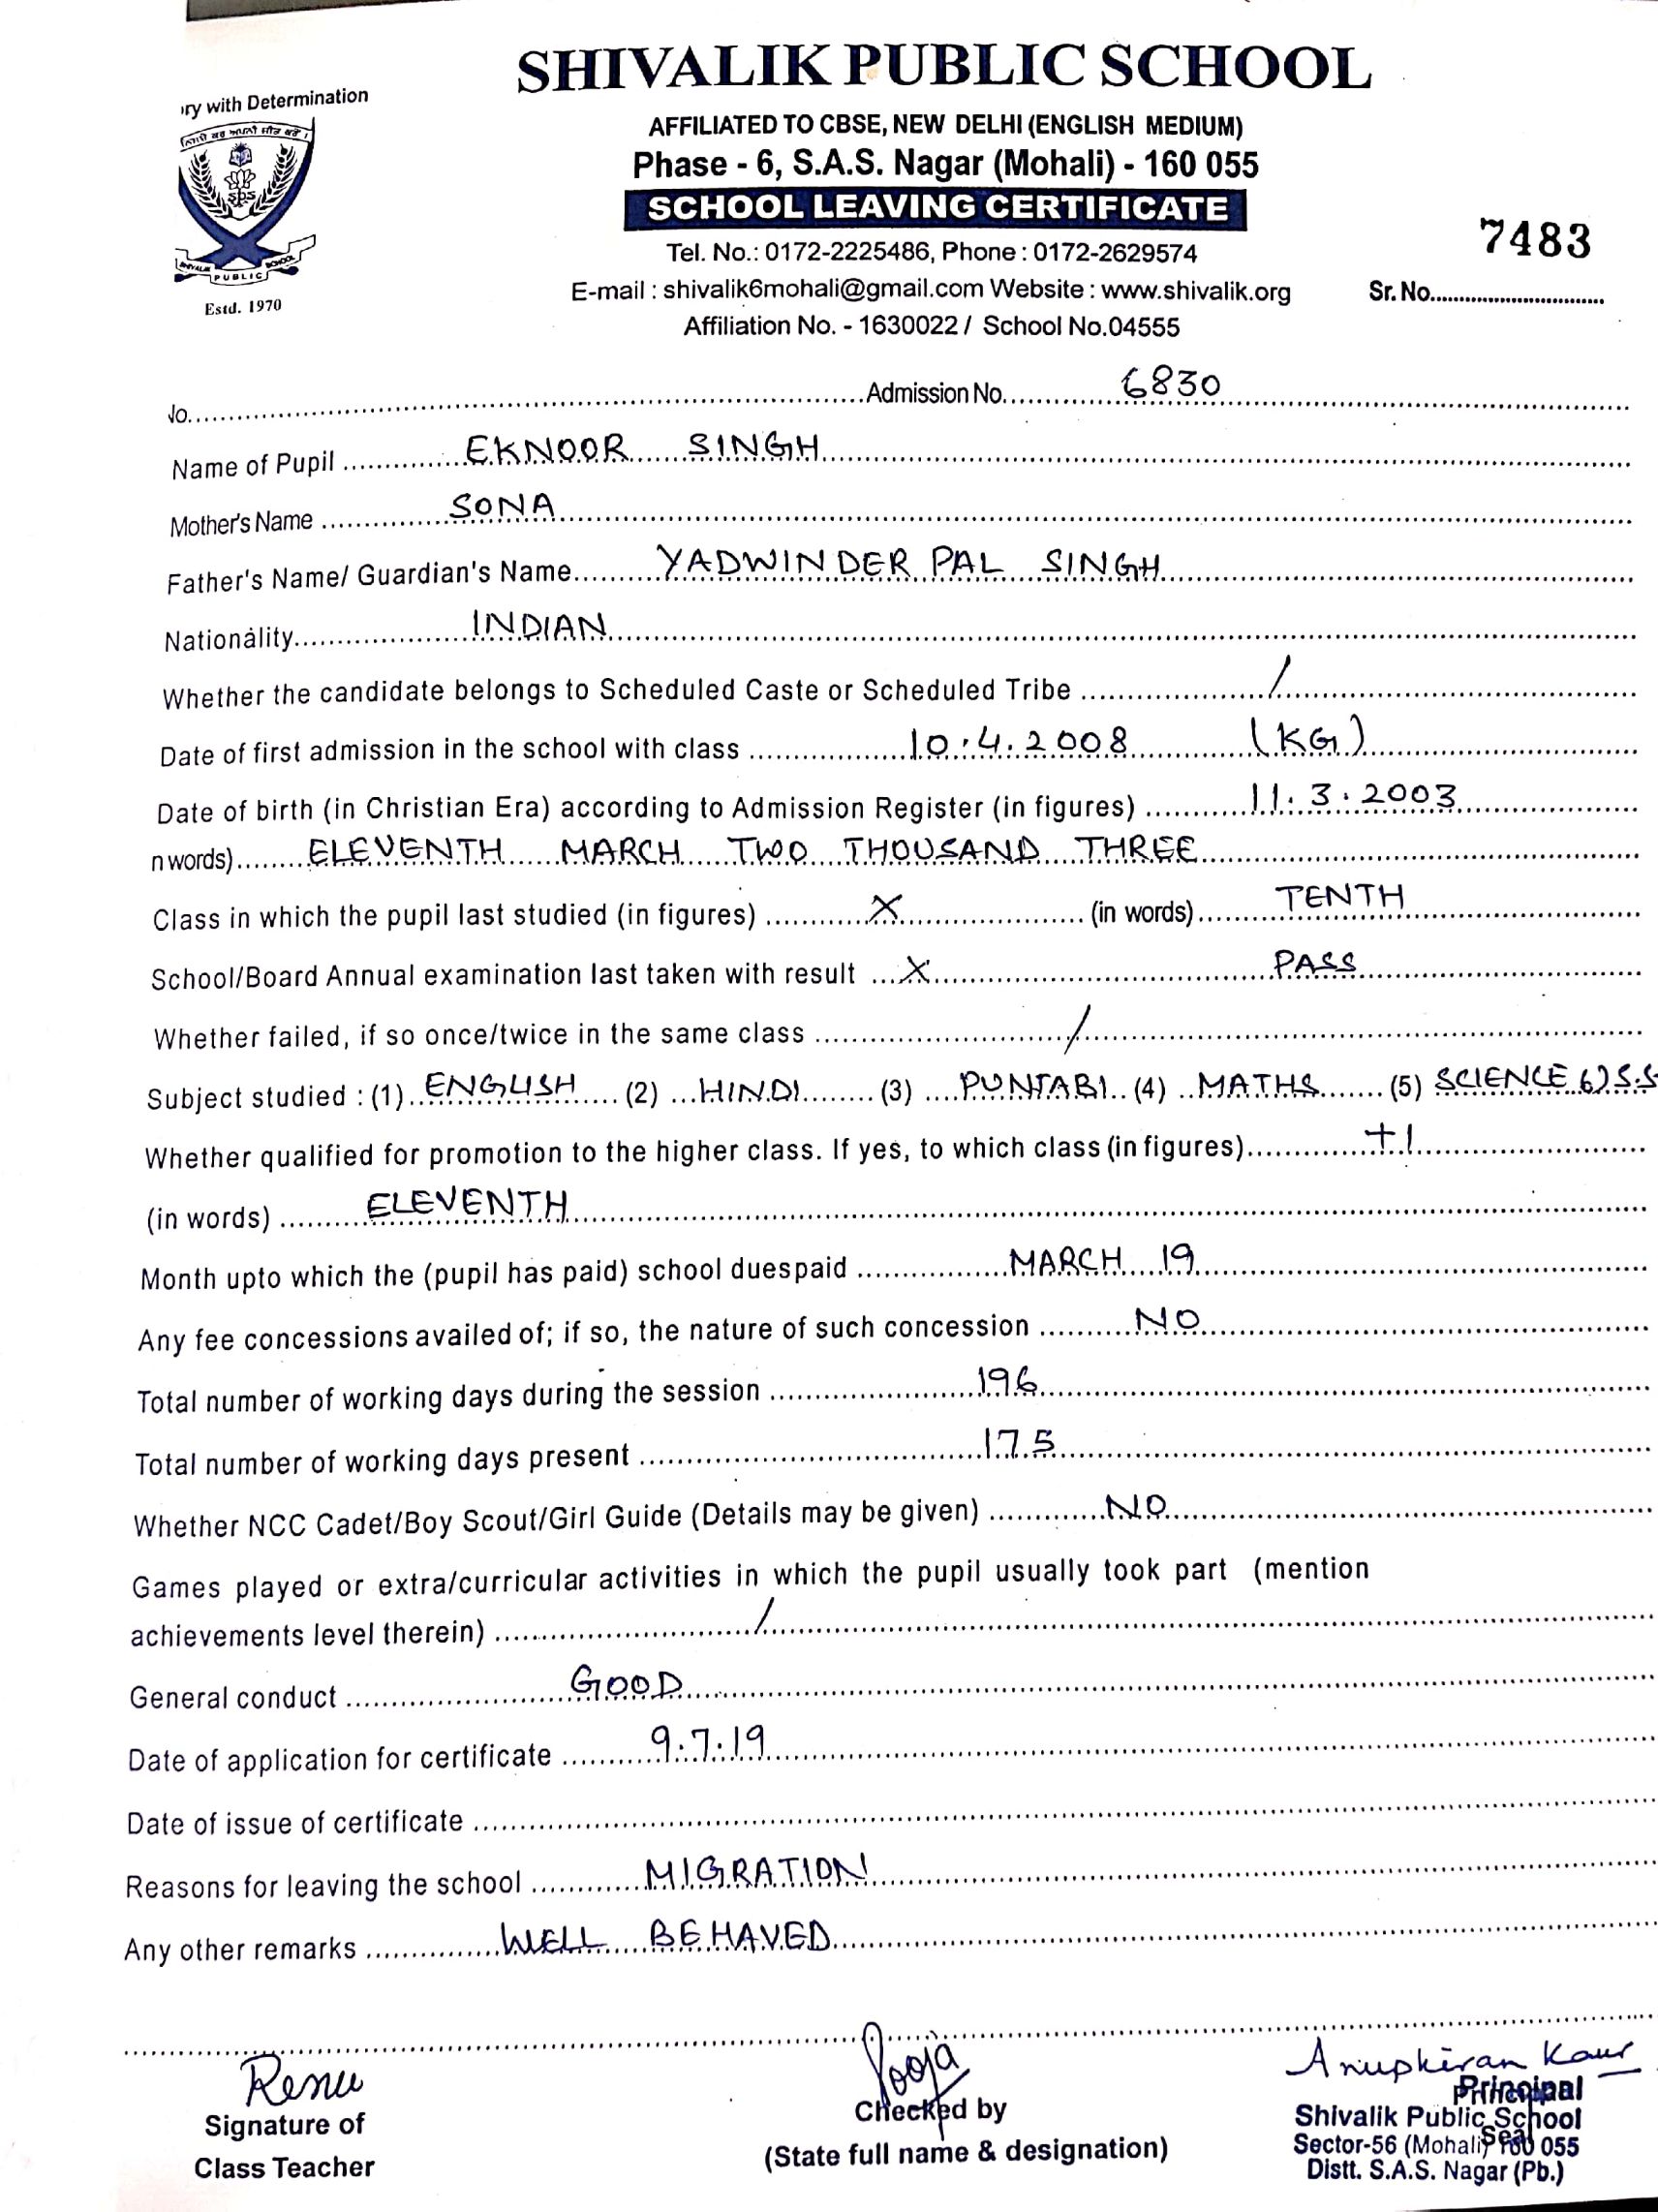 ry with Determination
SHIVALIK PUBLIC SCHOOL
AFFILIATED TO CBSE, NEW DELHI (ENGLISH MEDIUM)
Phase - 6, S.A.S. Nagar (Mohali) - 160 055
SCHOOL LEAVING CERTIFICATE
7483
Tel. No.: 0172-2225486, Phone : 0172-2629574
E-mail : shivalik6mohali@gmail.com Website : www.shivalik.org
Sr. No..............................
Affiliation No. - 1630022 / School No.04555
sps
SHIVALIK PUBLIC SCHOOL
Estd. 1970
No.....................Admission No............6830
Name of Pupil ............EKNOOR SINGH
Mother's Name ............SONA
Father's Name/ Guardian's Name.........YADWINDER PAL SINGH
Nationality.................INDIAN
Whether the candidate belongs to Scheduled Caste or Scheduled Tribe ................./
Date of first admission in the school with class .................10.4.2008 (KG)
Date of birth (in Christian Era) according to Admission Register (in figures) ..........11.3.2003
n words).......ELEVENTH MARCH TWO THOUSAND THREE
Class in which the pupil last studied (in figures) ..........X.................. (in words).........TENTH
School/Board Annual examination last taken with result ...X...........................PASS
Whether failed, if so once/twice in the same class ........................./
Subject studied : (1) ENGLISH.... (2) ...HINDI....... (3) ....PUNJABI.. (4) ..MATHS....... (5) SCIENCE 6) S.S
Whether qualified for promotion to the higher class. If yes, to which class (in figures).............+1
(in words) .........ELEVENTH
Month upto which the (pupil has paid) school duespaid ...............MARCH 19
Any fee concessions availed of; if so, the nature of such concession ..........NO
Total number of working days during the session .....................196
Total number of working days present ...............................175
Whether NCC Cadet/Boy Scout/Girl Guide (Details may be given) ............NO
Games played or extra/curricular activities in which the pupil usually took part (mention
achievements level therein) ........................./
General conduct .....................GOOD
Date of application for certificate .........9.7.19
Date of issue of certificate ..............................
Reasons for leaving the school ...........MIGRATION
Any other remarks .............WELL BEHAVED
Renu
Pooja
Anupkiran Kaur
Signature of
Class Teacher
Checked by
(State full name & designation)
Principal
Principal
Shivalik Public School
Seal
Sector-56 (Mohali) 160 055
Distt. S.A.S. Nagar (Pb.)